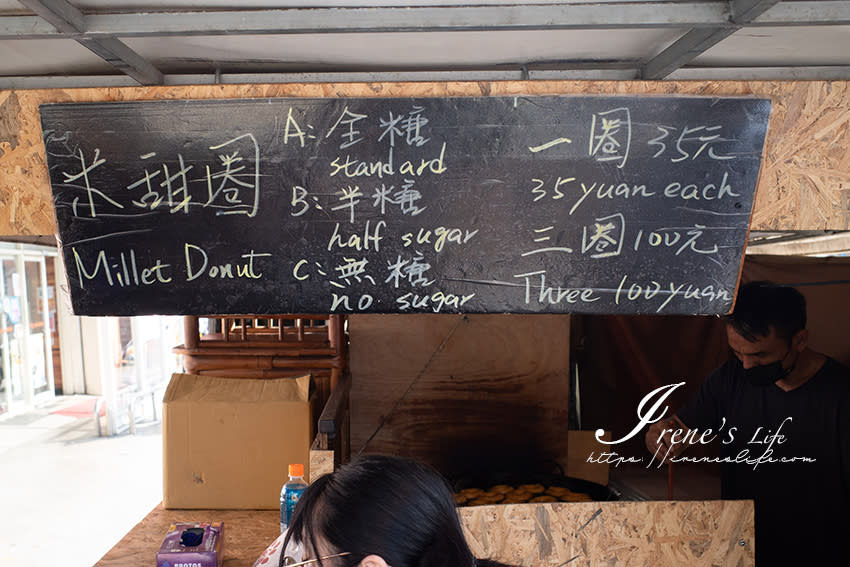 米甜圈
Millet Donut
A:全糖
standard
B:半糖
half sugar
C:無糖
no sugar
一圈35元
35 yuan each
三圈100元
Three 100 yuan
Irene's Life
https://ireneslife.com